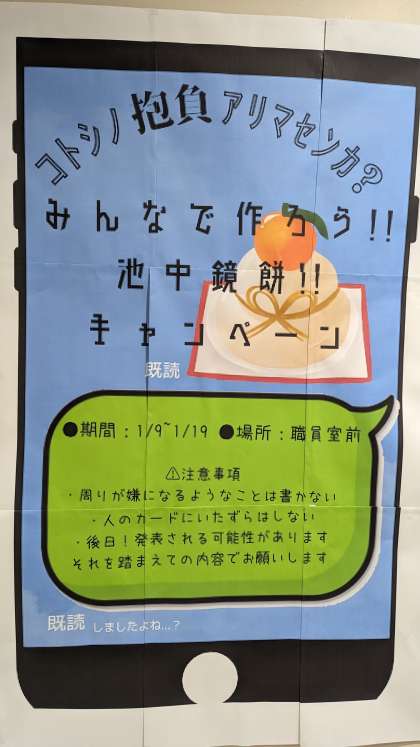 コトシノ抱負アリマセンカ?
みんなで作ろう!!
池中鏡餅!!
キャンペーン
既読
●期間：1/9~1/19 ●場所：職員室前
⚠注意事項
・周りが嫌になるようなことは書かない
・人のカードにいたずらはしない
・後日！発表される可能性があります
それを踏まえての内容でお願いします
既読 しましたよね...?